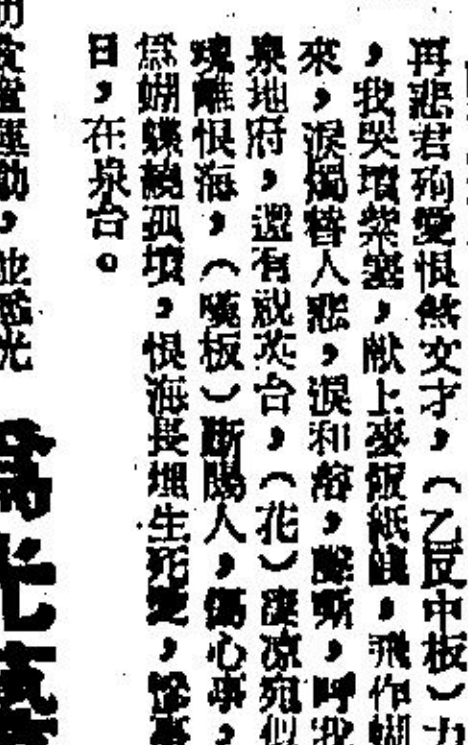 再悲君殉愛恨煞文才，（乙反中板）
，我哭墳紫塞，献上麥飯紙錢，飛作蝴
來，淚燭替人悲，淚和 ，聲嘶，呼我
泉地府，還有祝英台，（花）淒凉宛似
魂離恨海，（ 板）斷腸人，傷心事，
爲蝴蝶繞孤墳，恨海長埋生死愛，
日，在泉台。
運動，並 光
爲光